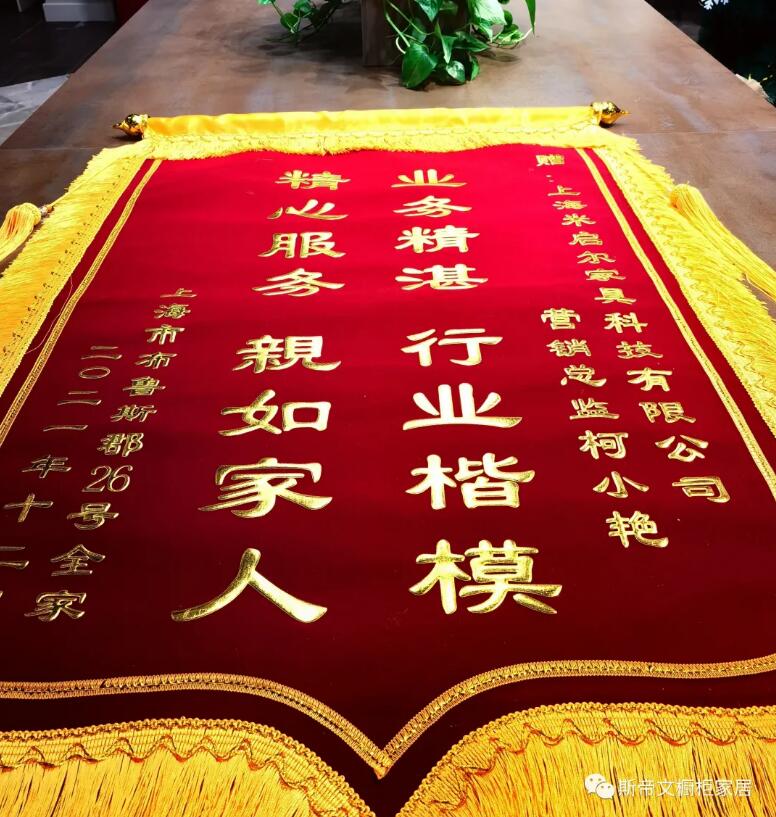 赠：上海米启尔家具科技有限公司
营销总监柯小艳
业务精湛 行业楷模
精心服务 親如家人
上海市布鲁斯郡26号全家
二〇二一年十二
斯帝文橱柜家居